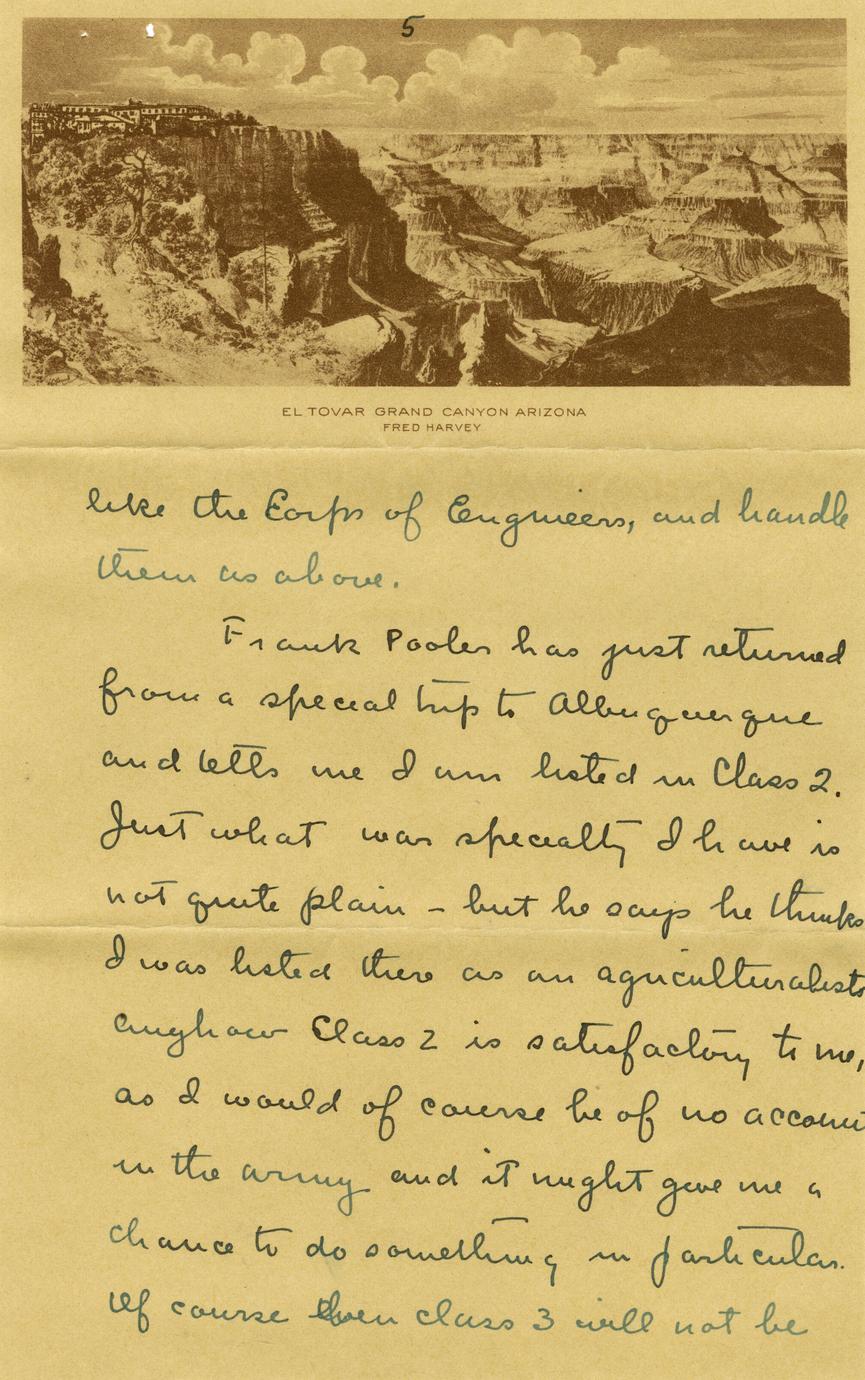 5
EL TOVAR GRAND CANYON ARIZONA
FRED HARVEY
like the Corps of Engineers, and handle
them as above.
Frank Pooler has just returned
from a special trip to Albuquerque
and tells me I am listed in Class 2.
Just what war specialty I have is
not quite plain - but he says he thinks
I was listed there as an agriculturalist
anyhow Class 2 is satisfactory to me,
as I would of course be of no account
in the army and it might give me a
chance to do something in particular.
Of course then class 3 will not be